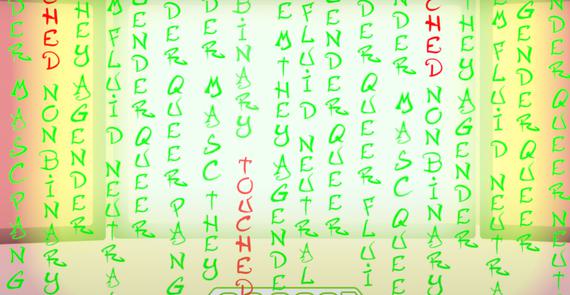 DER MASC PANG
CHED NONBINARY
HEY AGENDER
M FLUID NEUTRA
ENDER QUEER
DER QUEER PANG
DER MASC THEY
BINARY TOUCHED
EM THEY AGENDE
FLUID NEUTRAL
ENDER QUEER
DER QUEER FLUI
DER MASC QUEE
CHED NONBINARY
THEY AGENDER
M FLUID NEUTRA
GENDER QUEER
NDER QUEER NEUT